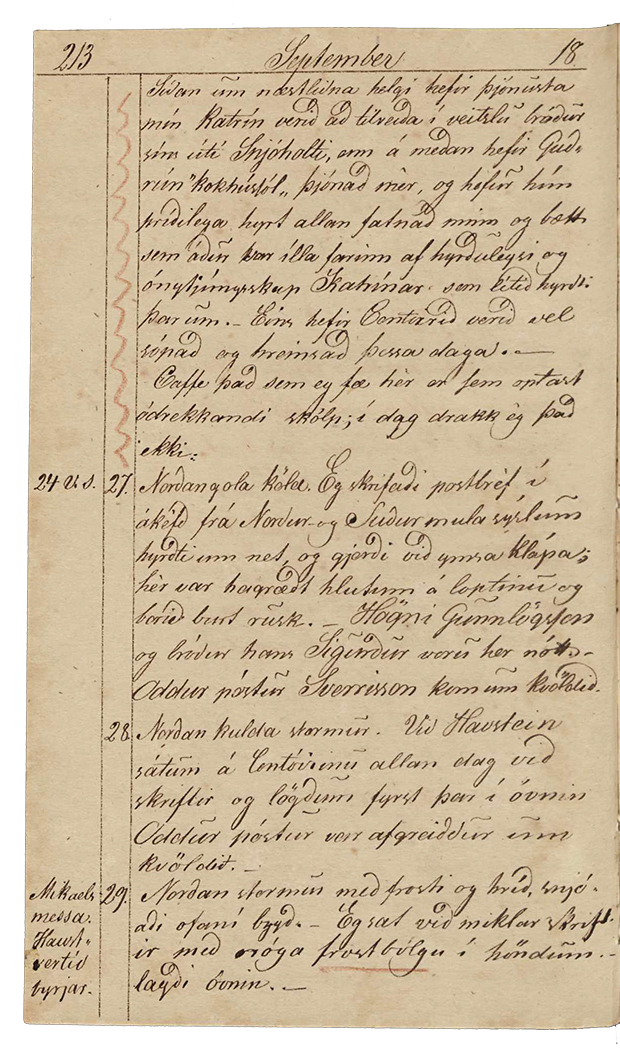 213 September 18
Síðan um næstliðna helgi hefir þjónusta
mín Katrín verid ad tilreida í veitslu bródur
síns úti Snjóholti, enn á medan hefir Gud-
rún "kokhússól„ þjónad mèr, og hefur hún
prídilega hyrt allan fatnad minn og bætt
sem ádur var ílla farinn af hyrduleysi og
ónytjúngsskap Katrínar sem lítid hyrdti
þar um. - Eins hefir Contorid verid vel
sópad og hreinsad þessa daga. -
Caffe það sem eg fæ hèr er sem optast
ódrekkandi skólp; í dag drakk èg það
ekki.
24 U. S. 27. Nordangola köld. Eg skrifadi postbréf í
ákéfd frá Nordur- og Sudurmulasýslum
hyrdti um net, og gjerdi vid ymsa klápa;
hèr var hagrædt hlutum á loptinu og
borid burt rusk. - Högni Gunnlögsson
og bródur hans Sigurdur voru her nótt. -
Oddur póstur Sverrisson kom um kvöldid.
28. Nordan kulda stormur. Vid Havstein
sátum á Contóirinu allan dag vid
skriftir og lögdum fyrst þar í óvnin
Oddur póstur var afgreiddur um
kvöldid. -
Mikaels 29. Nordan stormur med frosti og hríd, snjó-
messa. adi ofaní bygd. - Eg sat vid miklar skrift-
Haust- ir med frostbólgu í höndum. -
vertíd lagdi óvnin. -
byrjar.